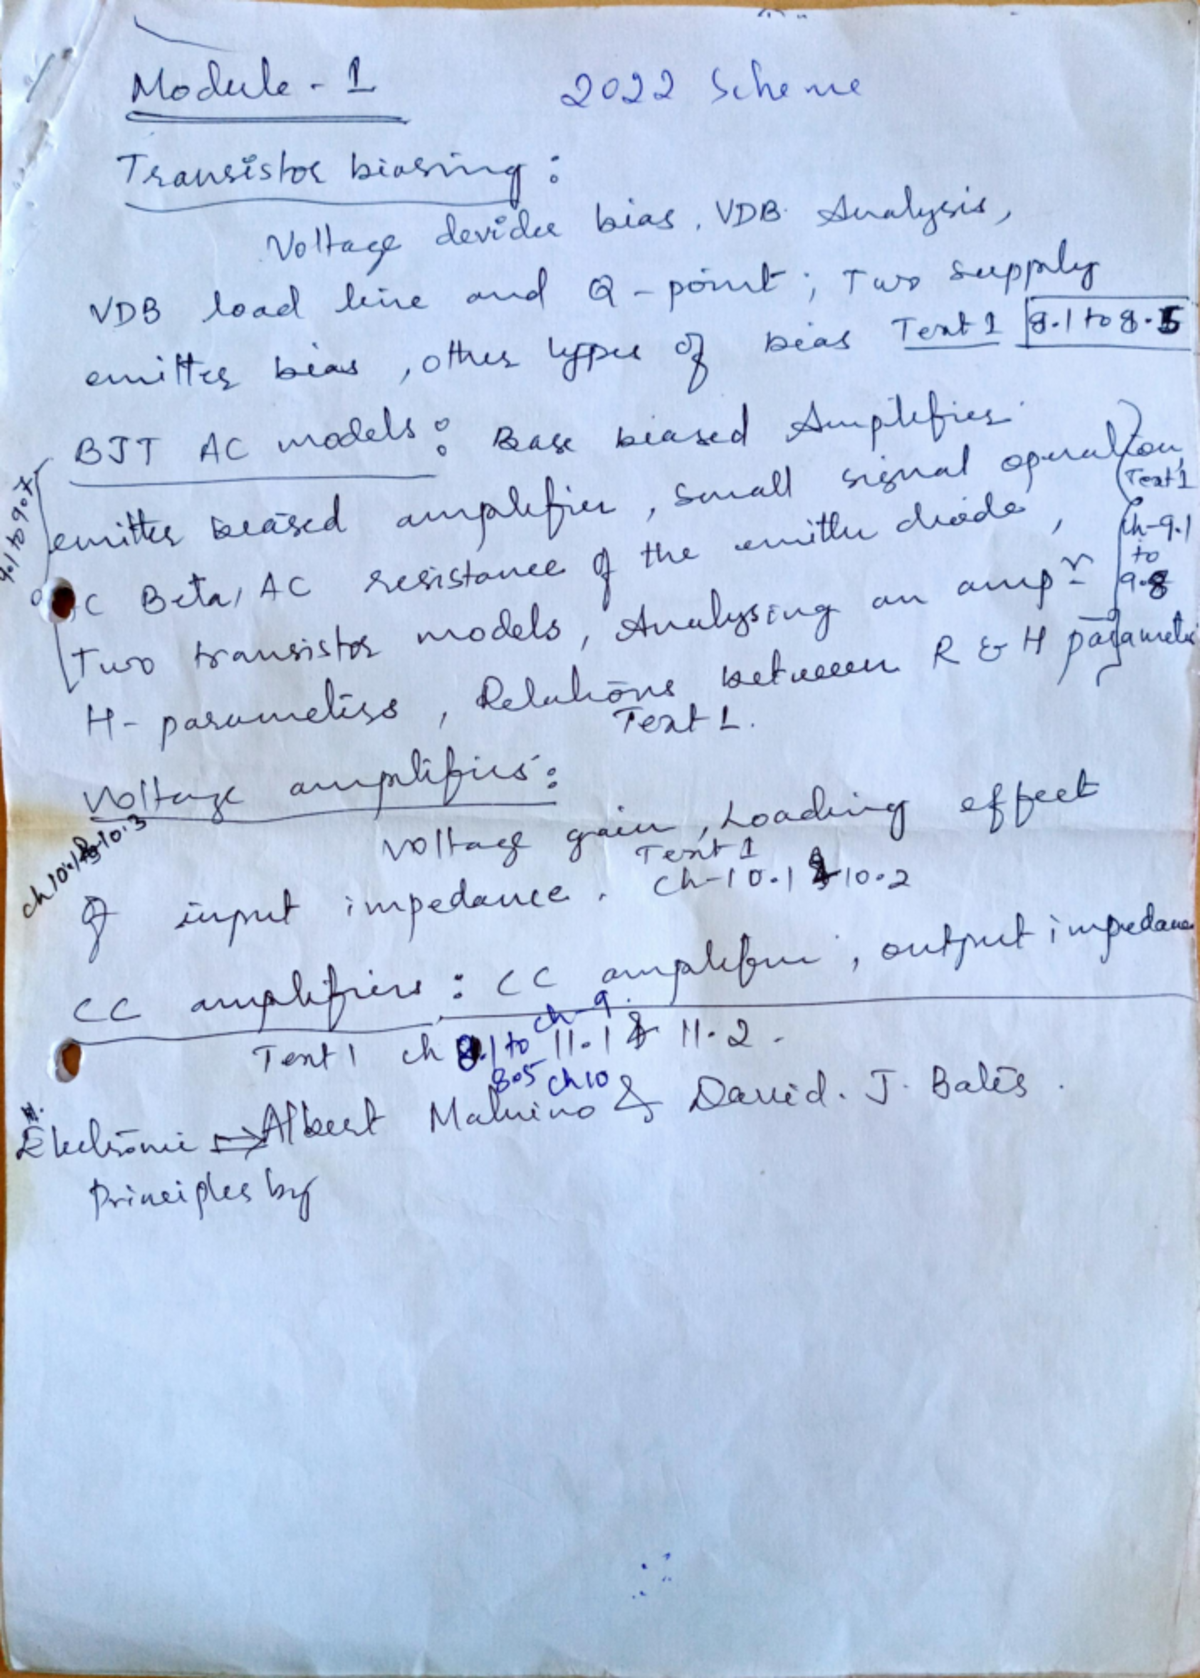 Module - 1 2022 Scheme
Transistor biasing :
Voltage devider bias, VDB Analysis,
VDB load line and Q - point ; Two supply
emitter bias , other types of bias Text 1 8.1 to 8.5
BJT AC models : Base biased Amplifier
emitter biased amplifier , small signal operation,
C Beta, AC resistance of the emitter diode ,
Two transistor models , Analysing an ampr
H - parameters , Relations between R & H parameter
Text 1.
Text 1
ch-9.1
to
9.8
9.1 to 9.7
Voltage amplifiers :
Voltage gain , Loading effect
of input impedance . Text 1
ch-10.1 & 10.2
ch 10.1 to 10.3
CC amplifiers : CC amplifier , output impedance
Text 1 ch 11.1 & 11.2 .
8.1 to
8.5
ch-9
ch10
Electronic ⇒ Albert Malvino & David. J. Bates .
Principles by